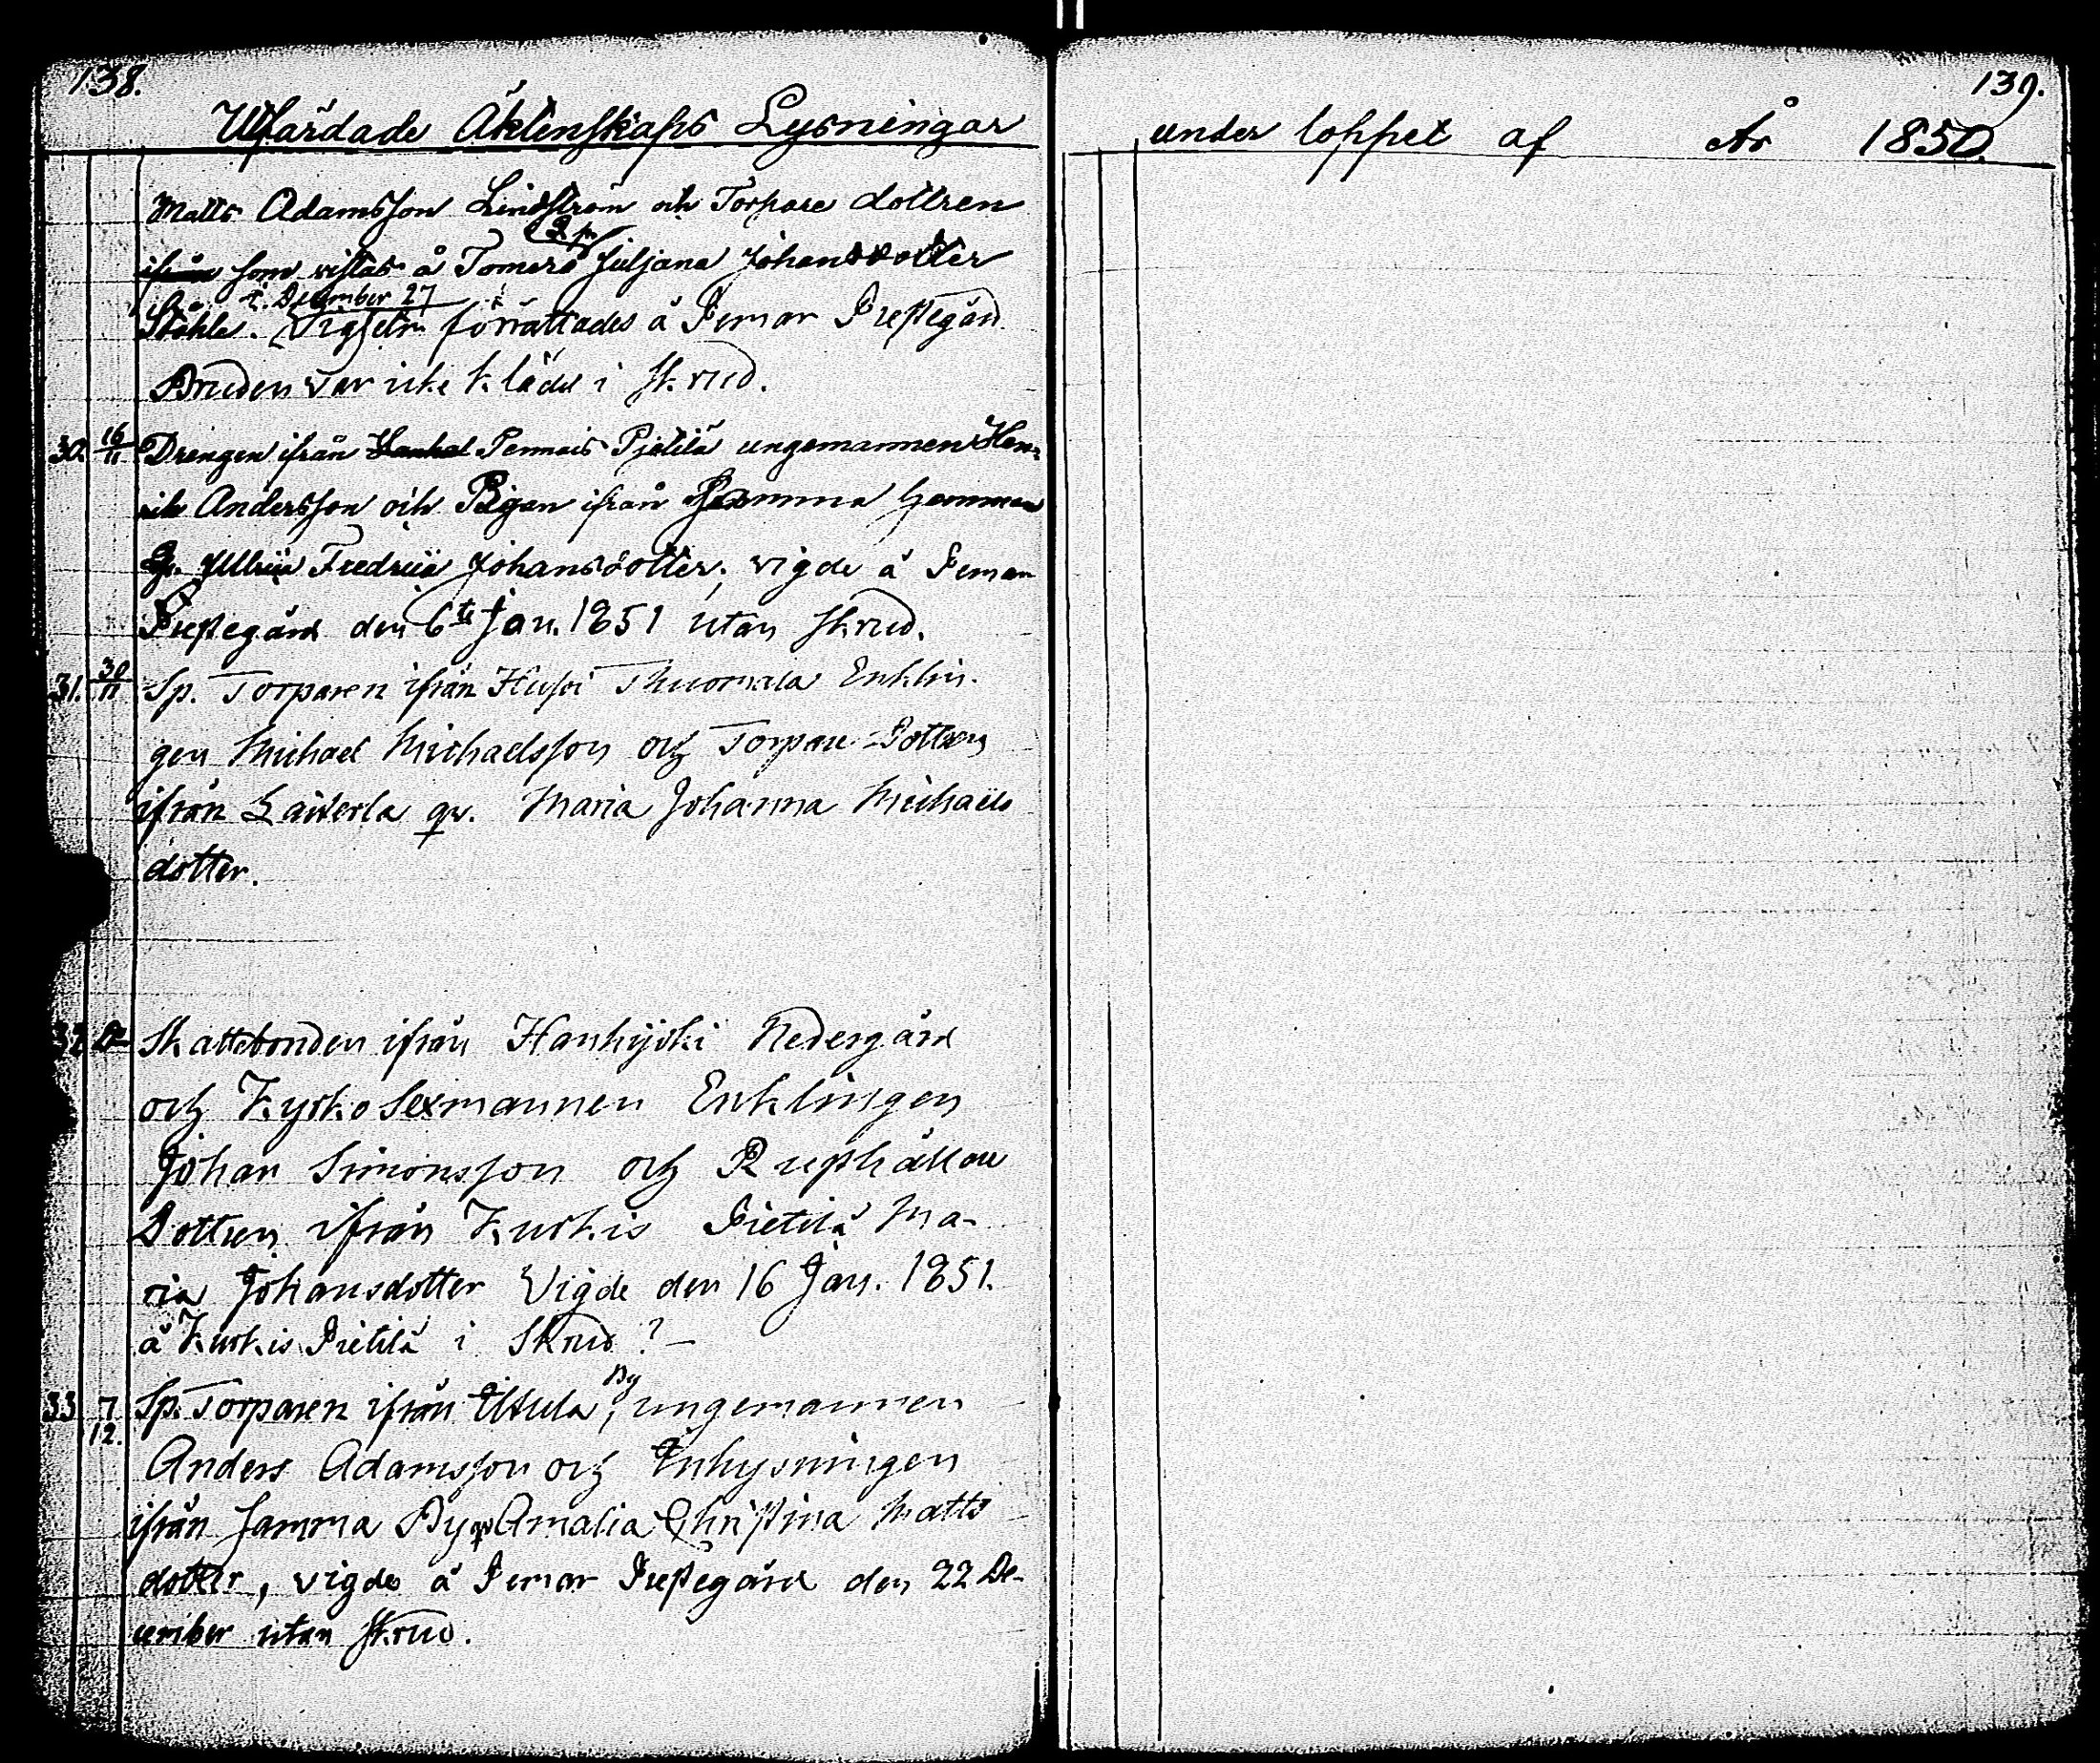 138.
Utfärdade Äktenskaps Lysningar
Matts Adamsson Lindström och Torpare dottren
ifrån som vistas å Tomera Q:p. Juljana Johansdotter
d. December 27
Ståhle. Vigseln förrättades å Pemar Prestegård
Bruden var icke klädd i skrud.
30. 16/11 Drengen ifrån Pennais Pjetilä ungemannen Hen-
rik Andersson och Pigan ifrån Jamma hemman
Q. Ullrica Fredrica Johansdotter, vigde å Pemar
Prestegård den 6te Jan. 1851 utan skrud.
31. 30/11 Sp. Torparen ifrån Husoi Thuomala Enklin-
gen Michael Michaelsson och Torpare-Dottren
ifrån qv. Maria Johanna Michaels
dotter.
32 Do Skattebonden ifrån Hankijoki Nedergård
och Kyrko Sexmannen Enklingen
Johan Simonsson och Rusthållare
Dottren ifrån Kurkis Pietilä Ma-
ria Johansdotter Vigde den 16 Jan. 1851.
å Kurkis Pietilä i Skrud ? —
33 7/12. Sp. Torparen ifrån By, ungemannen
Anders Adamsson och Inhysningen
ifrån Jamma By qv Amalia Christina Matts
dotter, vigdes å Pemar Prestegård den 22 De-
cember utan skrud.
139.
under loppet af År 1850.